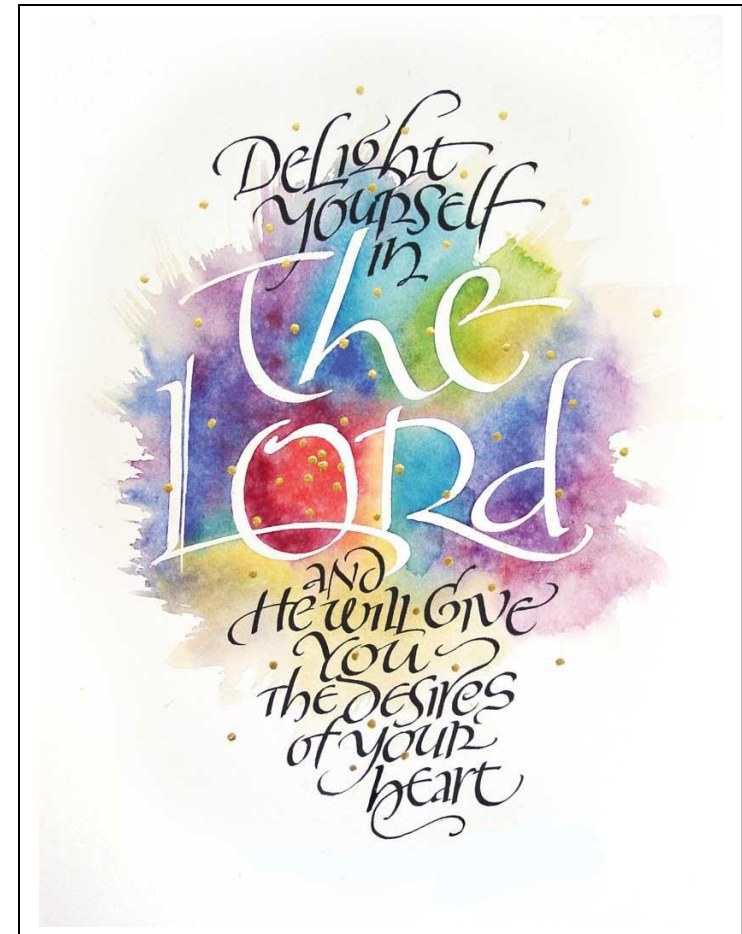 Delight
yourself
in
The
LORd
and
He will Give
You
The desires
of your
heart